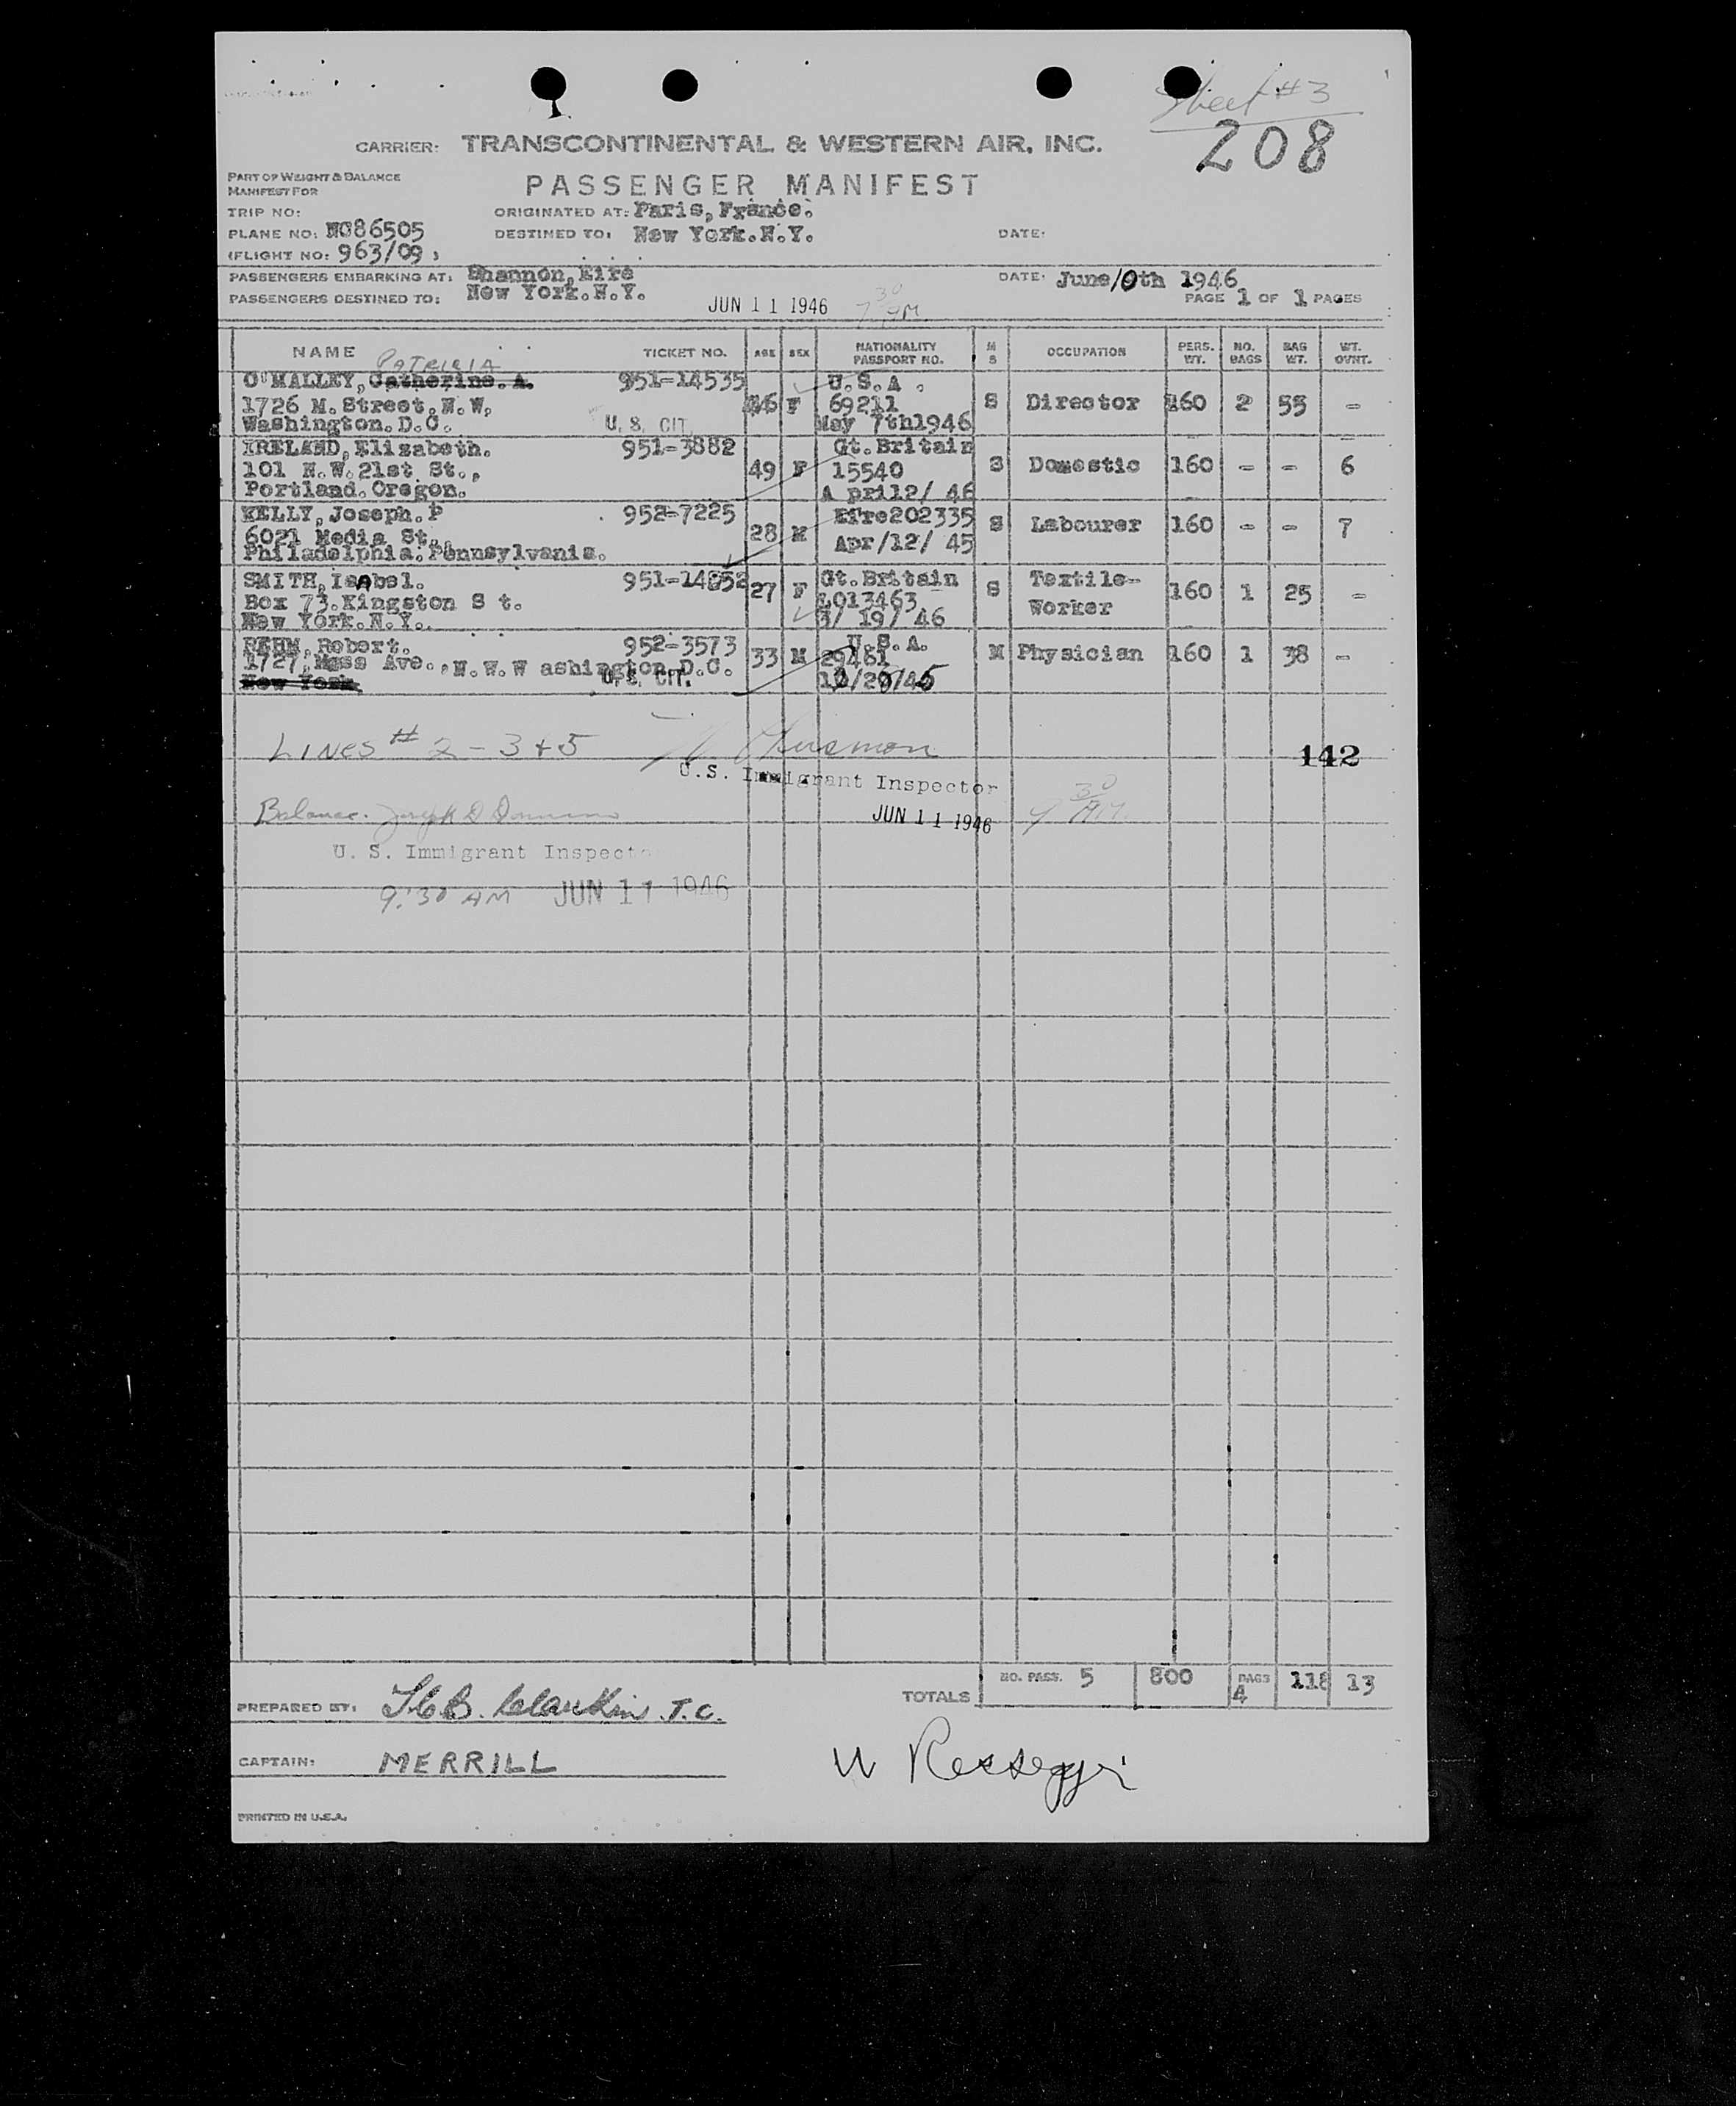 Sheet #3
208
CARRIER: TRANSCONTINENTAL & WESTERN AIR, INC.
PART OF WEIGHT & BALANCE
MANIFEST FOR
PASSENGER MANIFEST
TRIP NO:
ORIGINATED AT: Paris, France.
PLANE NO: NC86505
DESTINED TO: New York.N.Y.
DATE:
(FLIGHT NO: 963/09 )
PASSENGERS EMBARKING AT: Shannon, Eire
DATE: June/0th 1946
PASSENGERS DESTINED TO: New York.N.Y.
JUN 11 1946
7 30 AM.
PAGE 1 OF 1 PAGES
NAME TICKET NO. AGE SEX NATIONALITY PASSPORT NO. M S OCCUPATION PERS. WT. NO. BAGS BAG WT. WT. OVNT.
PATRICIA
O'MALLEY, Catherine. A. 951-14535 U.S.A.
1726 M. Street, N.W, 46 F 69211 S Director 160 2 55 -
Washington.D.C. U.S. CIT. May 7th1946
IRELAND, Elizabeth. 951-3882 Gt.Britain
101 N.W. 21st St., 49 F 15540 S Domestic 160 - - 6
Portland.Oregon. A pril2/ 46
KELLY, Joseph. P 952-7225 Eire202335
6021 Media St., 28 M S Labourer 160 - - 7
Philadelphia.Pennsylvania. Apr/12/ 45
SMITH, IsAbel. 951-14852 27 F Gt.Britain S Textile-
Box 73.Kingston S t. L013463 Worker 160 1 25 -
New York.N.Y. 3/ 19/ 46
REHM, Robert. 952-3573 U.S.A.
1727, Mass Ave., N.W.W ashington.D.C. 33 M 29461 M Physician 160 1 38 -
New York U.S. CIT. 10/29/45
LINES # 2 - 3 + 5
142
U.S. Immigrant Inspector
Balance.
JUN 11 1946
30 AM.
U. S. Immigrant Inspector
9:30 AM JUN 11 1946
TOTALS NO. PASS. 5 800 BAGS 4 118 13
PREPARED BY: T.C.
CAPTAIN: MERRILL
PRINTED IN U.S.A.